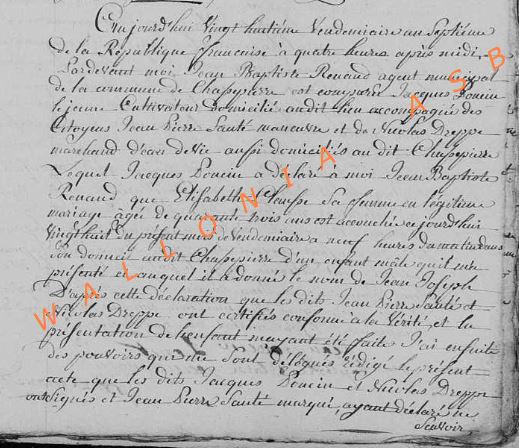 Cejourd'hui Vingt huitième Vendemiaire an Septième
de la République française à quatre heures après midi
Pardevant moi Jean Baptiste Renaud agent municipal
de la commune de est comparu Jacques Poncin
le jeune Cultivateur domicilié audit lieu accompagné des
Citoyens Jean Pierre Santé maneuvre et de Nicolas Dreppe
marchand d'eau de Vie aussi domiciliés au dit
Lequel Jacques Poncin a déclaré à moi Jean Baptiste
Renaud que Elisabeth sa femme en légitime
mariage âgée de quarante trois ans est accouchée aujourd'hui
Vingthuit du présent mois de Vendemiaire a neuf heures du matin dans
son domicil audit d'un enfant mâle qu'il m'a
présenté et auquel il a donné le nom de Jean Joseph
D'après cette déclaration que les dits Jean Pierre Santé et
Nicolas Dreppe ont certifiés conforme à la Vérité, et la
présentation de l'enfant m'ayant été faite J'ai ensuite
des pouvoirs qui me sont délégués rédigé le présent
acte que les dits Jacques Poncin et Nicolas Dreppe
ont signés et Jean Pierre Santé marqué, ayant déclaré ne
Scavoir
WALLONIA ASB